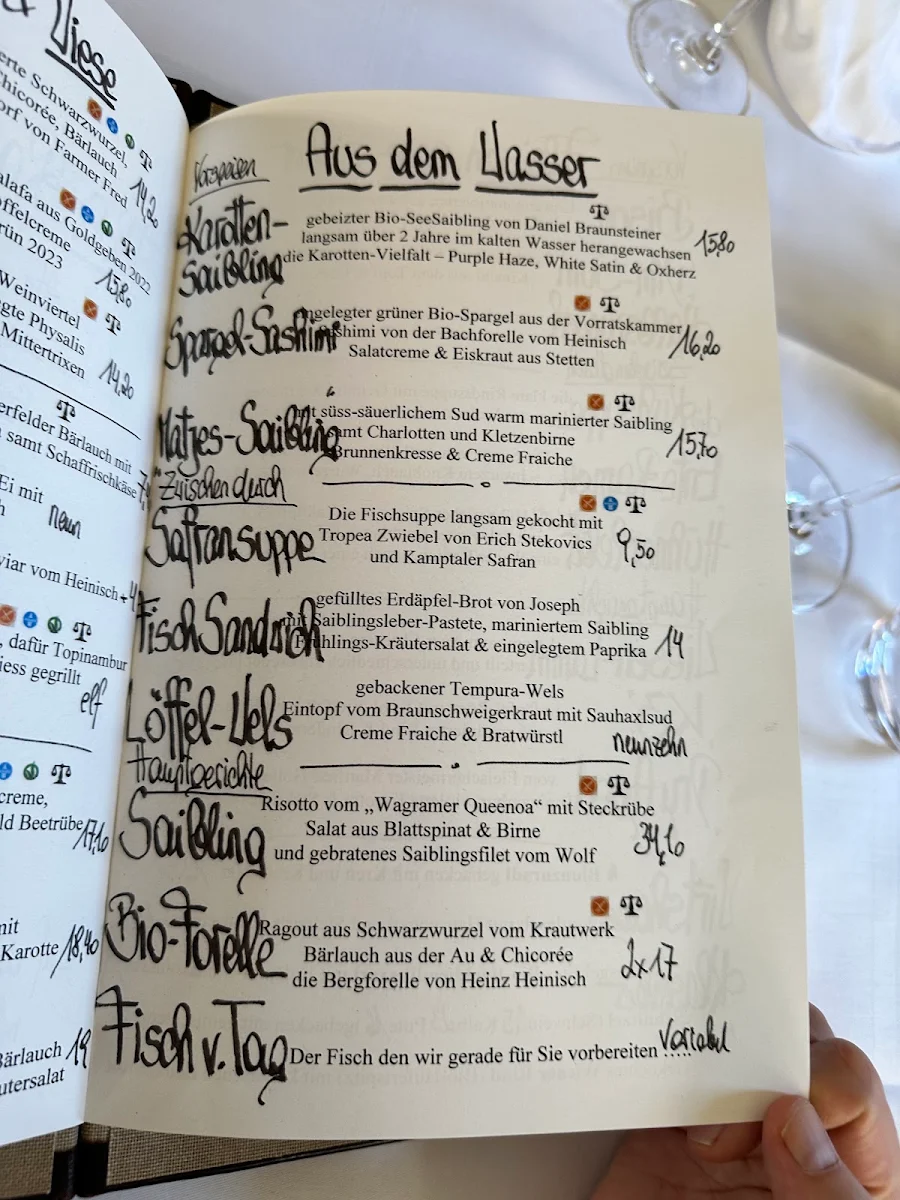 & Wiese
erte Schwarzwurzel,
Chicorée, Bärlauch
orf von Farmer Fred
14,20
alafa aus Goldgeben 2022
offelcreme
rün 2023
15,80
Weinviertel
gte Physalis
Mittertrixen
14,20
erfelder Bärlauch mit
samt Schaffrischkäse
Ei mit
neun
viar vom Heinisch +4
, dafür Topinambur
iess gegrillt
elf
creme,
ld Beetrübe 17,10
mit
Karotte 18,40
Bärlauch 19
utersalat
Aus dem Wasser
Vorspeisen
Karotten-
Saibling
gebeizter Bio-SeeSaibling von Daniel Braunsteiner
langsam über 2 Jahre im kalten Wasser herangewachsen
die Karotten-Vielfalt – Purple Haze, White Satin & Oxherz
15,80
Spargel-Sashimi
ngelegter grüner Bio-Spargel aus der Vorratskammer
shimi von der Bachforelle vom Heinisch
Salatcreme & Eiskraut aus Stetten
16,20
Matjes-Saibling
süss-säuerlichem Sud warm marinierter Saibling
samt Charlotten und Kletzenbirne
Brunnenkresse & Creme Fraiche
15,70
Zwischendurch
Safransuppe
Die Fischsuppe langsam gekocht mit
Tropea Zwiebel von Erich Stekovics
und Kamptaler Safran
9,50
Fisch Sandwich
gefülltes Erdäpfel-Brot von Joseph
mit Saiblingsleber-Pastete, mariniertem Saibling
Frühlings-Kräutersalat & eingelegtem Paprika
14
Löffel-Wels
gebackener Tempura-Wels
Eintopf vom Braunschweigerkraut mit Sauhaxlsud
Creme Fraiche & Bratwürstl
neunzehn
Hauptgerichte
Saibling
Risotto vom „Wagramer Queenoa“ mit Steckrübe
Salat aus Blattspinat & Birne
und gebratenes Saiblingsfilet vom Wolf
34,10
Bio-Forelle
Ragout aus Schwarzwurzel vom Krautwerk
Bärlauch aus der Au & Chicorée
die Bergforelle von Heinz Heinisch
2x17
Fisch v. Tag
Der Fisch den wir gerade für Sie vorbereiten .....